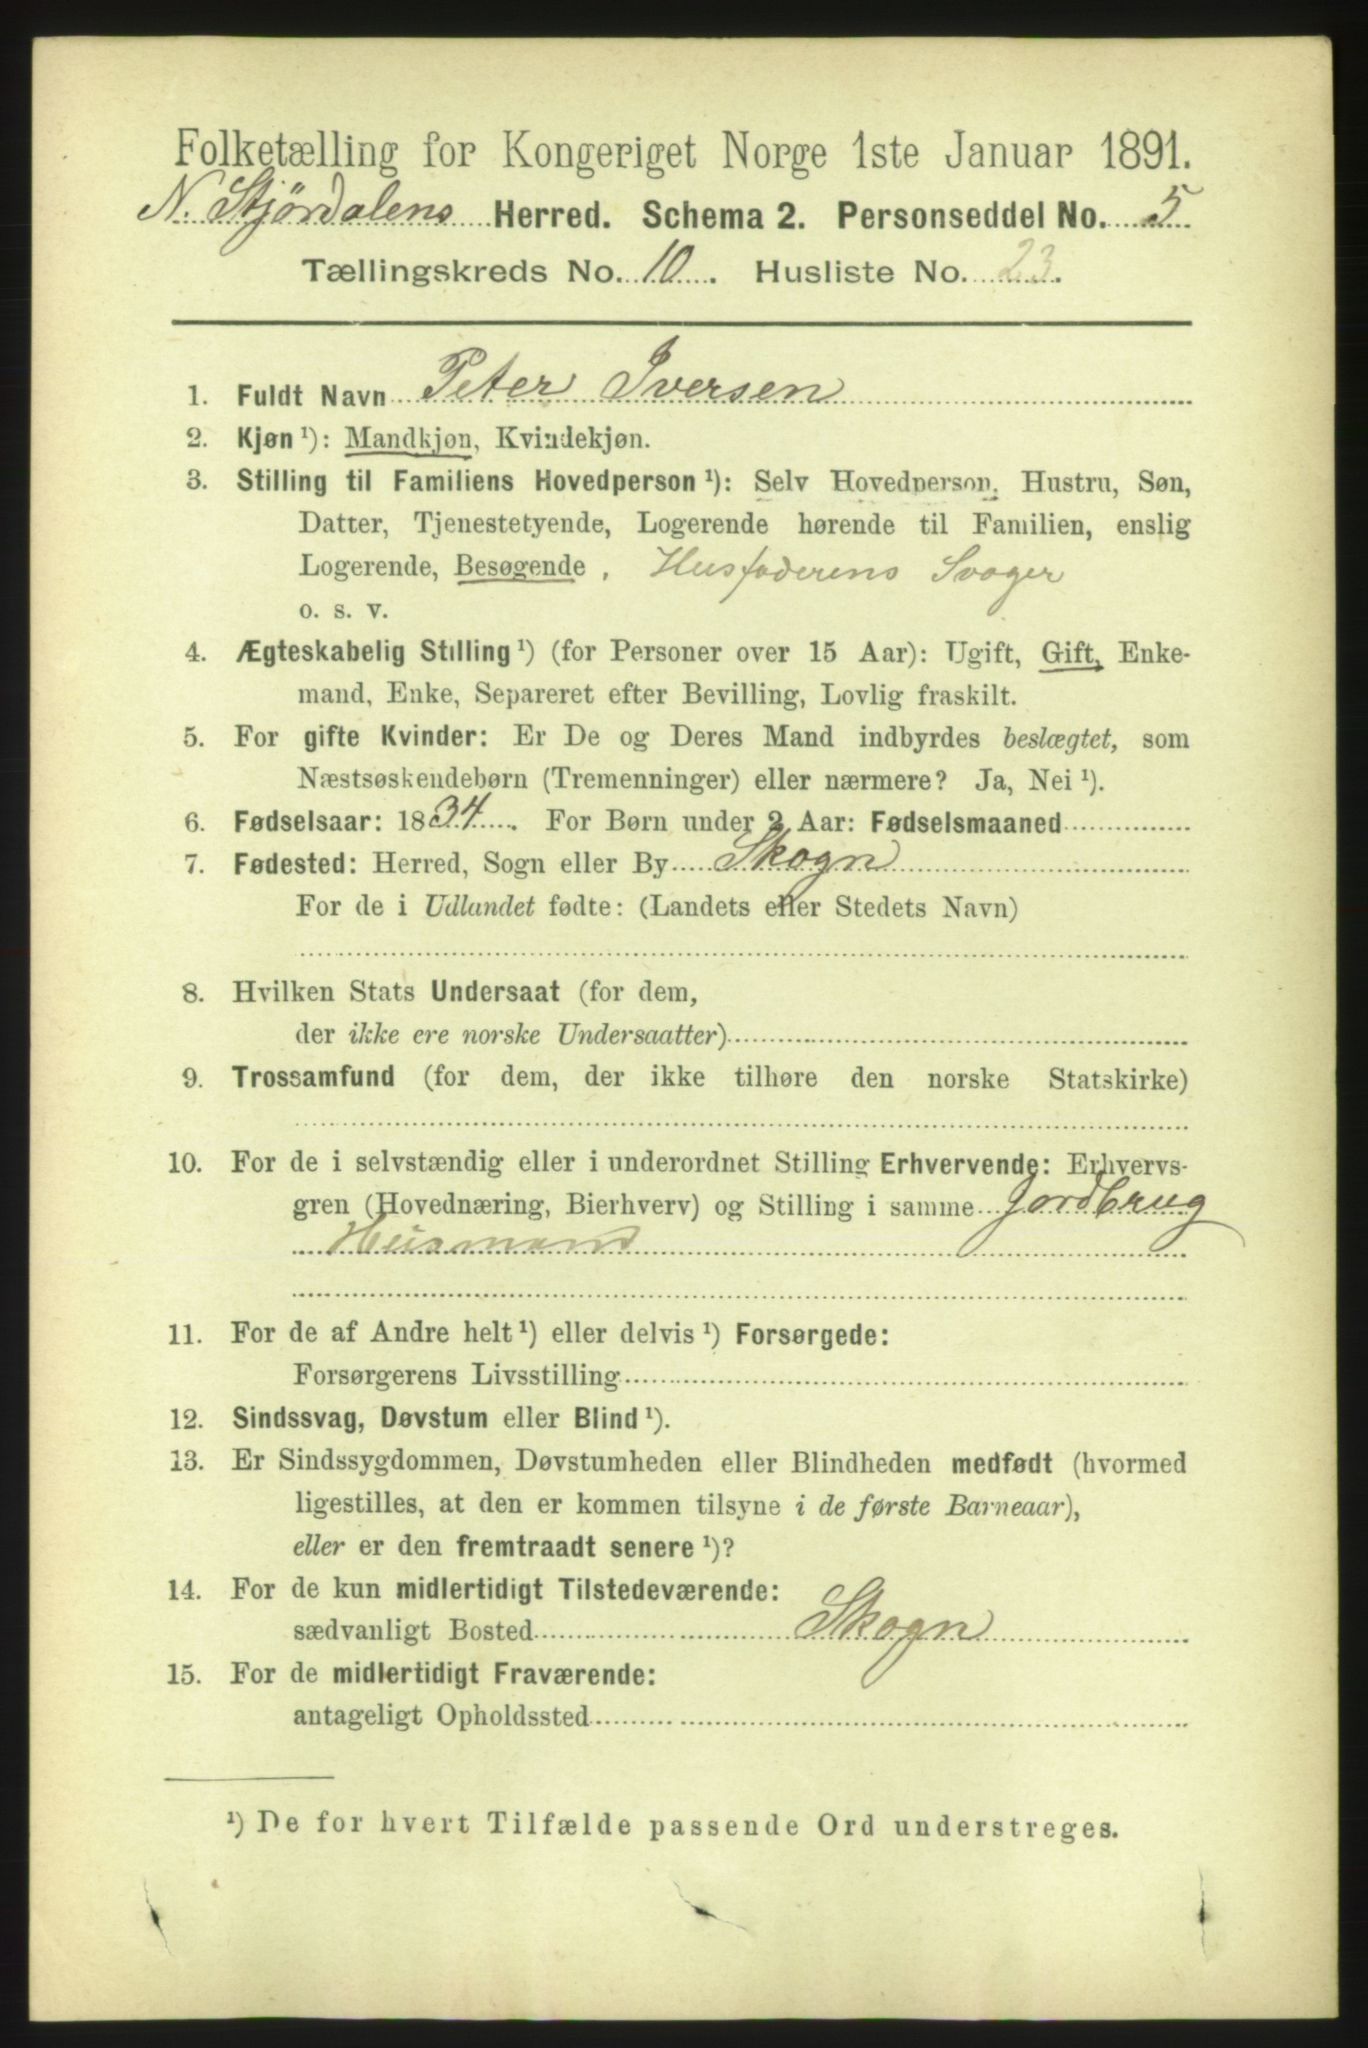 Folketælling for Kongeriget Norge 1ste Januar 1891.
N. Stjördalens Herred. Schema 2. Personseddel No. 5
Tællingskreds No. 10. Husliste No. 23.
1. Fuldt Navn Peter Iversen
2. Kjøn ¹): Mandkjøn, Kvindekjøn.
3. Stilling til Familiens Hovedperson ¹): Selv Hovedperson, Hustru, Søn,
Datter, Tjenestetyende, Logerende hørende til Familien, enslig
Logerende, Besøgende . Husfaderens Svoger
o. s. v.
4. Ægteskabelig Stilling ¹) (for Personer over 15 Aar): Ugift, Gift, Enke-
mand, Enke, Separeret efter Bevilling, Lovlig fraskilt.
5. For gifte Kvinder: Er De og Deres Mand indbyrdes beslægtet, som
Næstsøskendebørn (Tremenninger) eller nærmere? Ja, Nei ¹).
6. Fødselsaar: 1834. For Børn under 2 Aar: Fødselsmaaned
7. Fødested: Herred, Sogn eller By Skogn
For de i Udlandet fødte: (Landets eller Stedets Navn)
8. Hvilken Stats Undersaat (for dem,
der ikke ere norske Undersaatter)
9. Trossamfund (for dem, der ikke tilhøre den norske Statskirke)
10. For de i selvstændig eller i underordnet Stilling Erhvervende: Erhvervs-
gren (Hovednæring, Bierhverv) og Stilling i samme Jordbrug
Husmand
11. For de af Andre helt ¹) eller delvis ¹) Forsørgede:
Forsørgerens Livsstilling
12. Sindssvag, Døvstum eller Blind ¹).
13. Er Sindssygdommen, Døvstumheden eller Blindheden medfødt (hvormed
ligestilles, at den er kommen tilsyne i de første Barneaar),
eller er den fremtraadt senere ¹)?
14. For de kun midlertidigt Tilstedeværende:
sædvanligt Bosted Skogn
15. For de midlertidigt Fraværende:
antageligt Opholdssted
¹) De for hvert Tilfælde passende Ord understreges.